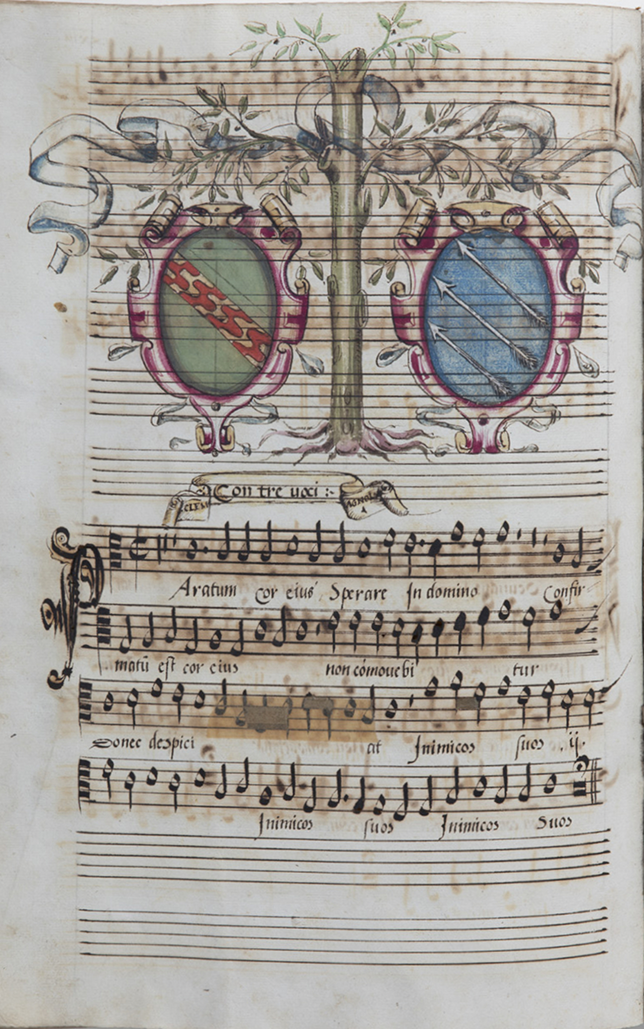 Con tre uoci :~
Aratum cor eius Sperare In domino Confir-
matū est cor eius non cōmouebi tur
Donec despici at Inimicos suos ij.
Inimicos suos Inimicos Suos